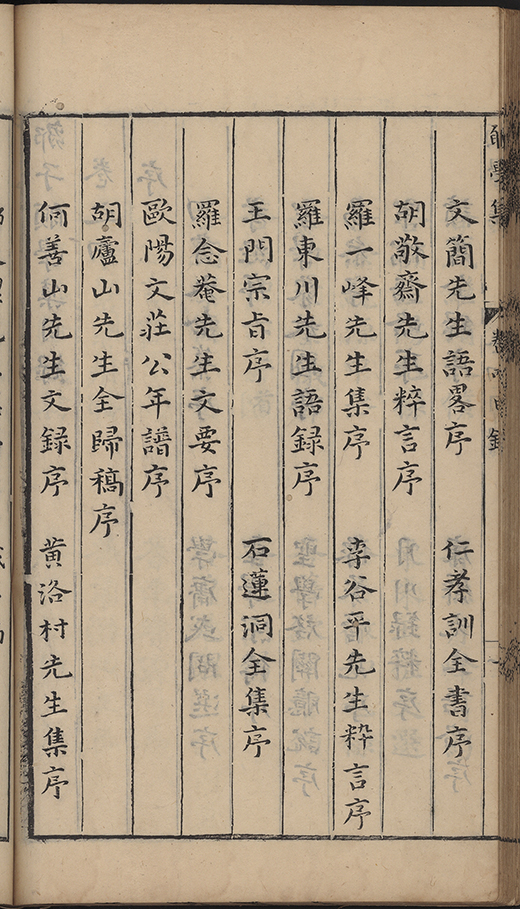 文簡先生語畧序　仁孝訓全書序
胡敬齋先生粹言序
羅一峰先生集序　李谷平先生粹言序
羅東川先生語録序
王門宗㫖序　石蓮洞全集序
羅念菴先生文要序
歐陽文莊公年譜序
胡廬山先生全歸稿序
何善山先生文録序　黄洛村先生集序